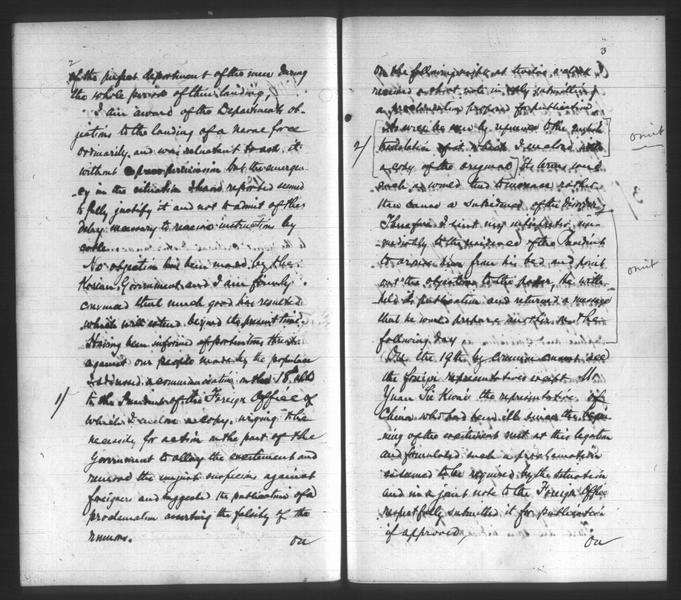 2
of the perfect deportment of the men during
the whole period of their landing.
I am aware of the Departments ob-
jections to the landing of a naval force
ordinarily, and was reluctant to ask it
without permission but the emergen-
cy in the situation I have reported seemed
to fully justify it and not to admit of the
delay necessary to receive instruction by
cable.
No objection has been made by the
Korean Government and I am firmly
convinced that much good has resulted
which will extend beyond its present time.
Having been informed of threats
against our people made by the populace
I addressed a communication on the 18th
to the President of the Foreign Office of
which I enclose a copy, urging the
1/
necessity for action on the part of the
Government to allay the excitement and
remove the unjust suspicions against
foreigners and suggested the publication of a
proclamation asserting the falsity of the
rumors.
On
3
On the following night at twelve o'clock I
received a short note in reply submitting
a proclamation proposed for publication
2/
as will be seen by reference to the English
translation of which I enclose with
a copy of the original. Its terms were
such as would tend to increase rather
than cause a subsidence of the disorder.
Therefore I sent my interpreter im-
mediately to the residence of the President
to arouse him from his bed and point
out the objections to the paper, he with-
held its publication and returned a message
that he would prepare another on the
following day
omit
3/
omit
On the 19th by common consent all
the foreign representatives except Mr
Yuan Sie Kwai the representative of
China who had been ill since the begin-
ning of the excitement met at this legation
and formulated such a proclamation
as seemed to be required by the situation
and in a joint note to the Foreign Office
respectfully submitted it for publication
if approved.
On